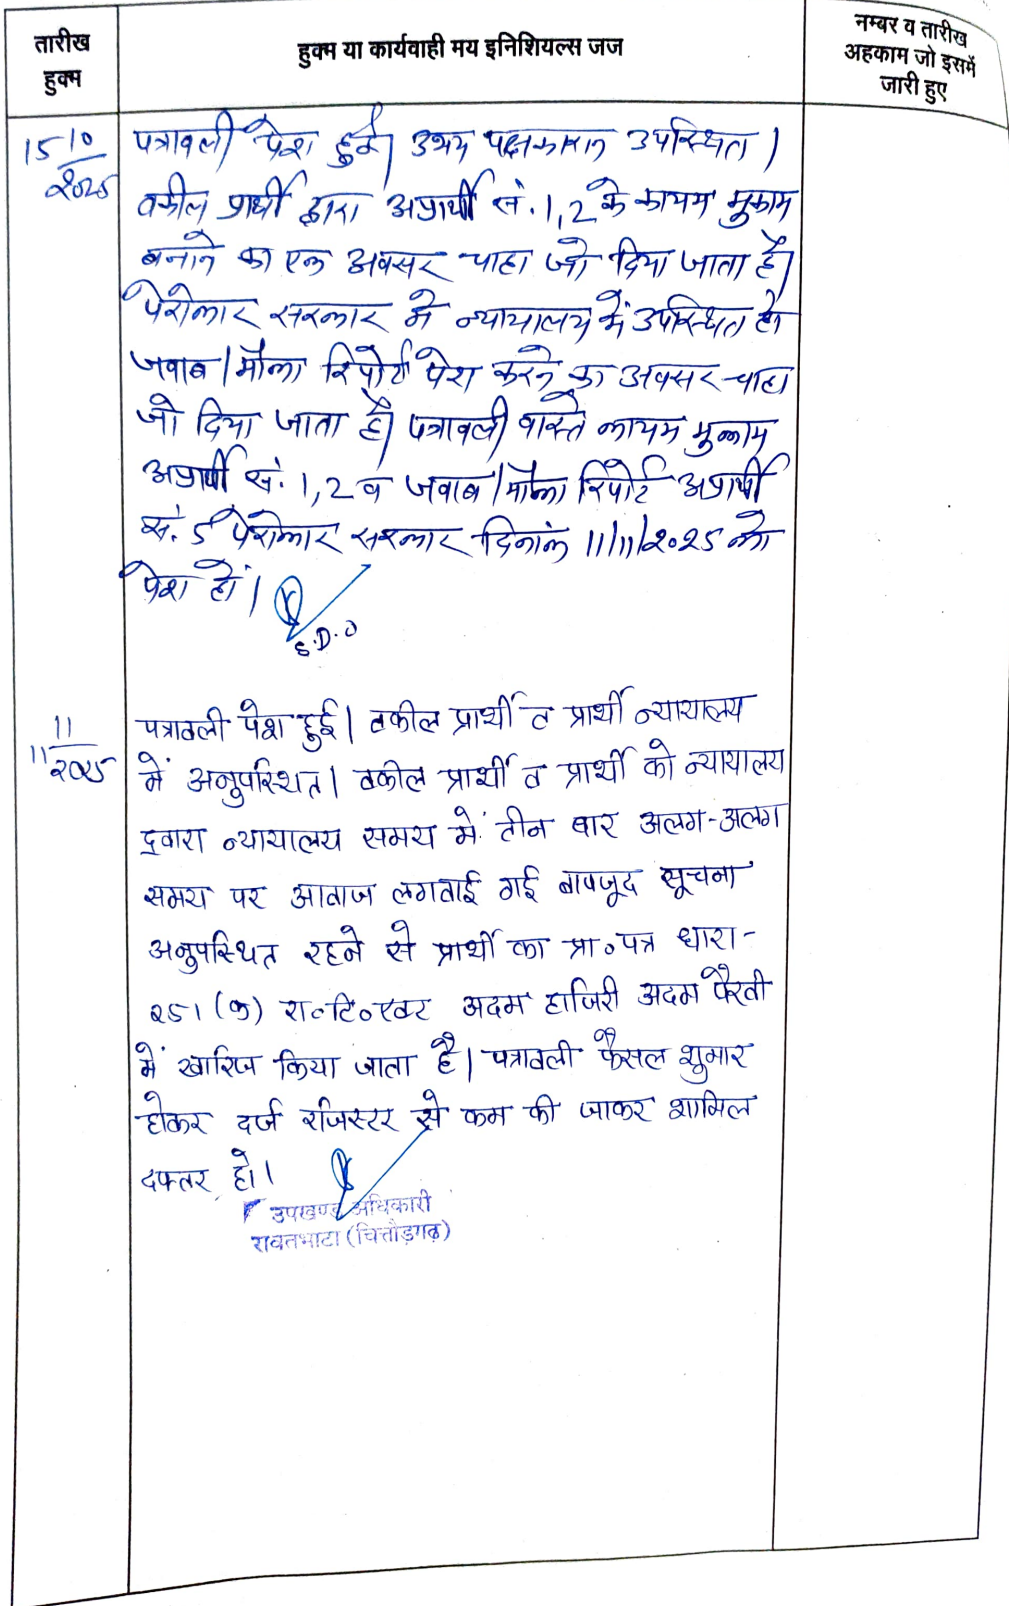 तारीख
हुक्म
हुक्म या कार्यवाही मय इनिशियल्स जज
नम्बर व तारीख
अहकाम जो इसमें
जारी हुए
15/10/2025
पत्रावली पेश हुई। उभय पक्षकारान उपस्थित।
वकील प्रार्थी द्वारा अप्रार्थी सं. 1,2 के कायम मुकाम
बनाने का एक अवसर चाहा जो दिया जाता है।
पेरोकार सरकार ने न्यायालय में उपस्थित हो
जवाब/मौका रिपोर्ट पेश करने का अवसर चाहा
जो दिया जाता है। पत्रावली वास्ते कायम मुकाम
अप्रार्थी सं. 1,2 व जवाब/मौका रिपोर्ट अप्रार्थी
सं. 5 पेरोकार सरकार दिनांक 11/11/2025 को
पेश हो।
S.D.O
11/11/2025
पत्रावली पेश हुई। वकील प्रार्थी व प्रार्थी न्यायालय
में अनुपस्थित। वकील प्रार्थी व प्रार्थी को न्यायालय
द्वारा न्यायालय समय में तीन बार अलग-अलग
समय पर आवाज लगवाई गई बावजूद सूचना
अनुपस्थित रहने से प्रार्थी का प्रा०पत्र धारा-
251(क) रा०टि०एक्ट अदम हाजिरी अदम पैरवी
में खारिज किया जाता है। पत्रावली फैसल शुमार
होकर दर्ज रजिस्टर से कम की जाकर शामिल
दफ्तर हो।
उपखण्ड अधिकारी
रावतभाटा (चित्तौड़गढ़)